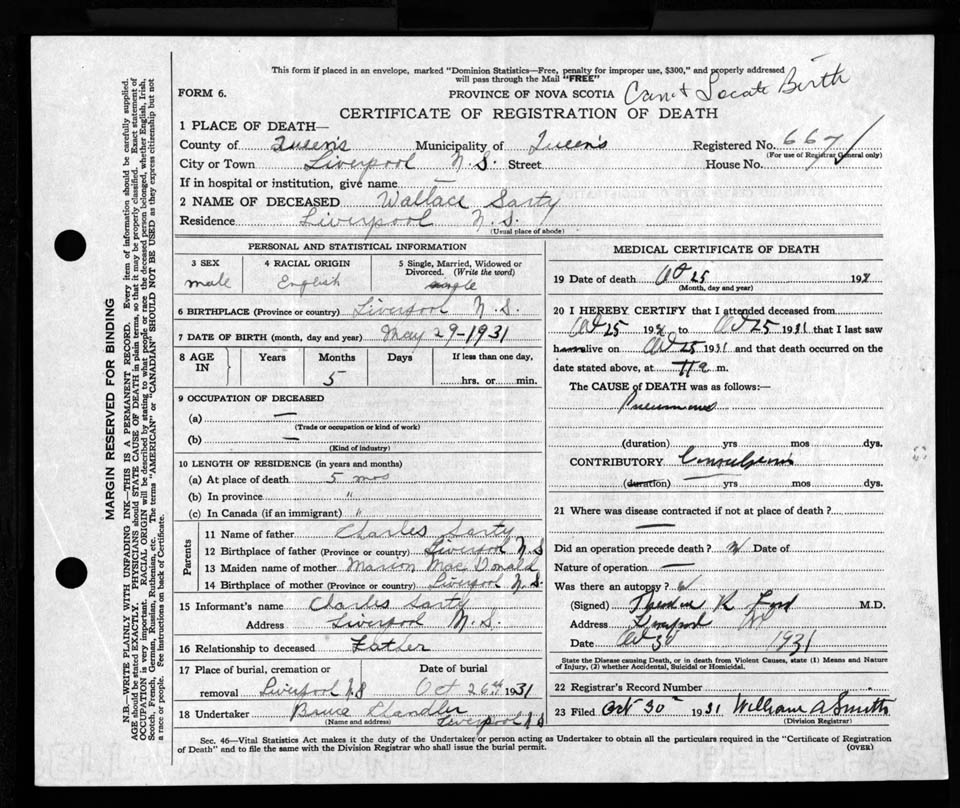 This form if placed in an envelope, marked "Dominion Statistics—Free, penalty for improper use, $300," and properly addressed
will pass through the Mail "FREE"
FORM 6.
PROVINCE OF NOVA SCOTIA
Can't Locate Birth
CERTIFICATE OF REGISTRATION OF DEATH
1 PLACE OF DEATH—
County of Queen's Municipality of Queen's Registered No. 667
(For use of Registrar General only)
City or Town Liverpool N.S. Street House No.
If in hospital or institution, give name —
2 NAME OF DECEASED Wallace Sarty
Residence Liverpool N.S.
(Usual place of abode)
PERSONAL AND STATISTICAL INFORMATION
3 SEX 4 RACIAL ORIGIN 5 Single, Married, Widowed or
Divorced. (Write the word)
male English single
6 BIRTHPLACE (Province or country) Liverpool N.S.
7 DATE OF BIRTH (month, day and year) May 29-1931
8 AGE IN Years Months Days If less than one day,
5 hrs. or min.
9 OCCUPATION OF DECEASED
(a) —
(Trade or occupation or kind of work)
(b) —
(Kind of industry)
10 LENGTH OF RESIDENCE (in years and months)
(a) At place of death 5 mos
(b) In province "
(c) In Canada (if an immigrant) "
Parents
11 Name of father Charles Sarty
12 Birthplace of father (Province or country) Liverpool N.S
13 Maiden name of mother Marion MacDonald
14 Birthplace of mother (Province or country) Liverpool N.S.
15 Informant's name Charles Sarty
Address Liverpool N.S.
16 Relationship to deceased Father
17 Place of burial, cremation or Date of burial
removal Liverpool N.S Oct 26th 1931
18 Undertaker Bruce Chandler
(Name and address) Liverpool N.S
MEDICAL CERTIFICATE OF DEATH
19 Date of death Oct 25 193
(Month, day and year)
20 I HEREBY CERTIFY that I attended deceased from
Oct 25 193 to Oct 25 1931 that I last saw
h alive on Oct 25 1931 and that death occurred on the
date stated above, at 11 a m.
The CAUSE of DEATH was as follows:—
Pneumonia
(duration) yrs mos dys.
CONTRIBUTORY Convulsions
(duration) yrs mos dys.
21 Where was disease contracted if not at place of death?
—
Did an operation precede death? N Date of
Nature of operation —
Was there an autopsy?
(Signed) Theodore R Ford M.D.
Address Liverpool
Date Oct 30 1931
State the Disease causing Death, or in death from Violent Causes, state (1) Means and Nature
of Injury, (2) whether Accidental, Suicidal or Homicidal.
22 Registrar's Record Number
23 Filed Oct 30 1931 William A Smith
(Division Registrar)
Sec. 46—Vital Statistics Act makes it the duty of the Undertaker or person acting as Undertaker to obtain all the particulars required in the "Certificate of Registration
of Death" and to file the same with the Division Registrar who shall issue the burial permit.
(OVER)
MARGIN RESERVED FOR BINDING
N.B.—WRITE PLAINLY WITH UNFADING INK—THIS IS A PERMANENT RECORD. Every item of information should be carefully supplied.
AGE should be stated EXACTLY. PHYSICIANS should STATE CAUSE OF DEATH in plain terms, so that it may be properly classified. Exact statement of
OCCUPATION is very important. RACIAL ORIGIN will be described by stating to what people or race the deceased person belonged, whether English, Irish,
Scotch, French, German, Russian, Ruthenian, etc. The terms "AMERICAN" or "CANADIAN" SHOULD NOT BE USED as they express citizenship but not
a race or people. See instructions on back of Certificate.